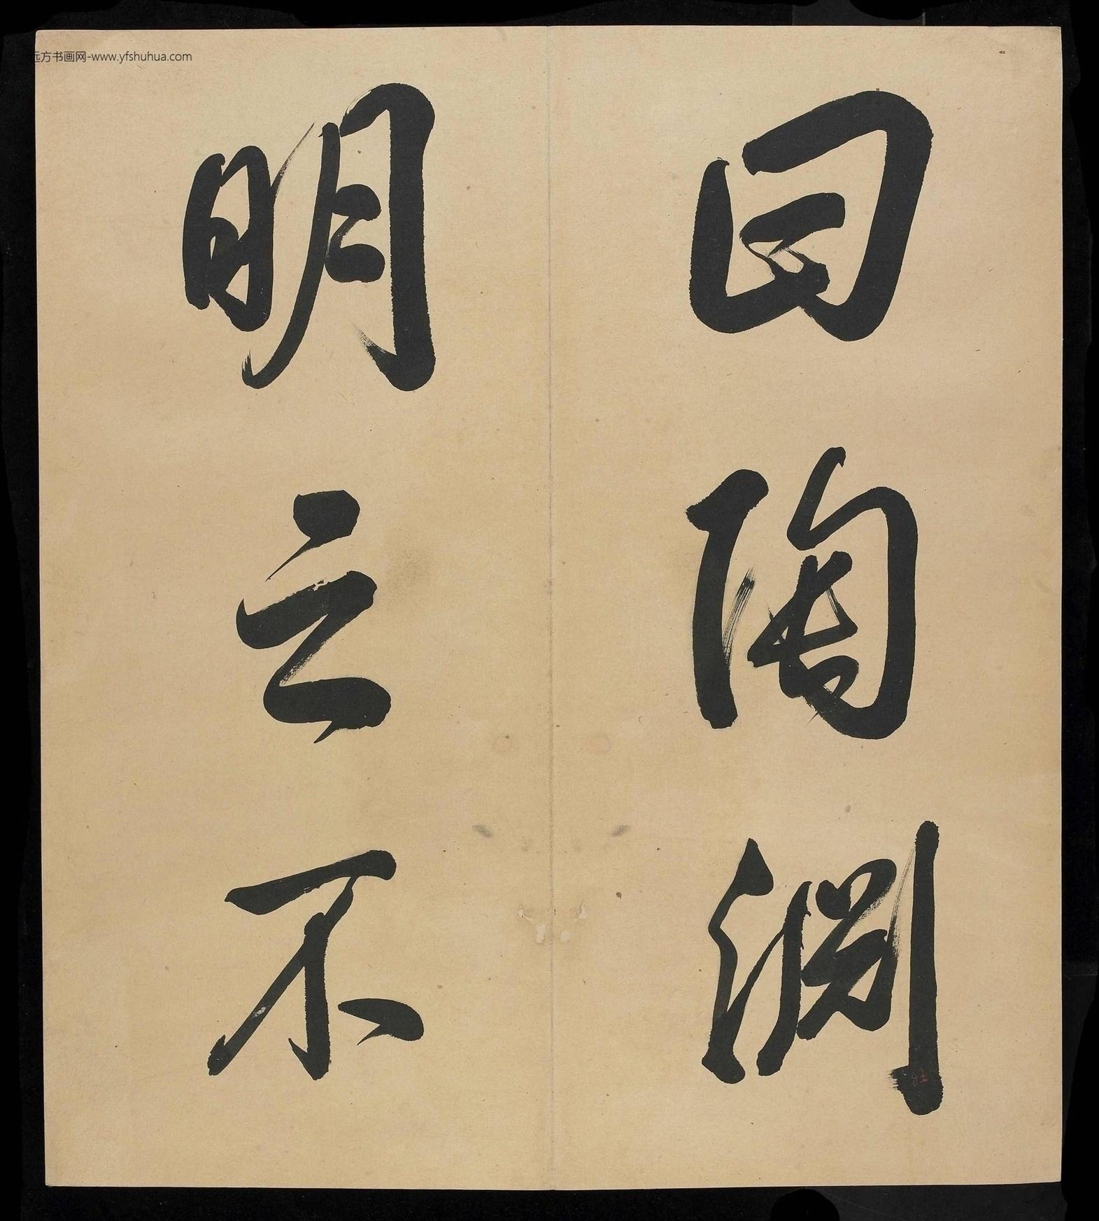 远方书画网-www.yfshuhua.com
曰陶渊
明云不